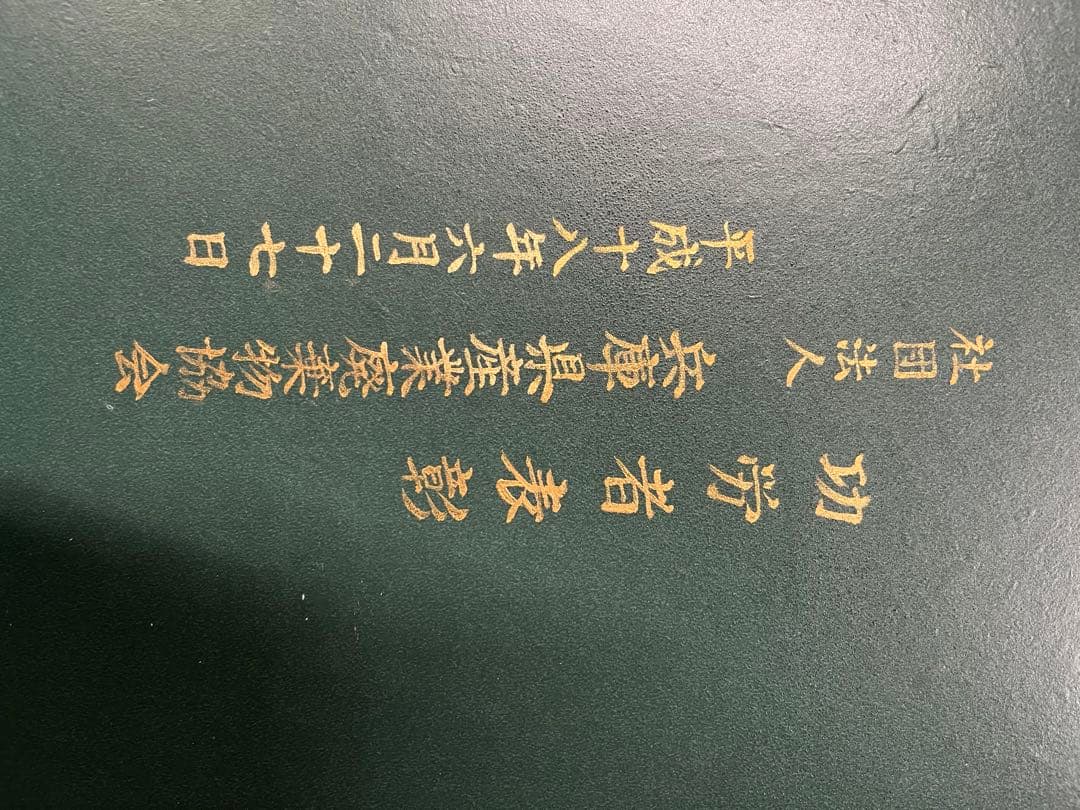 功労者表彰
社団法人 兵庫県産業廃棄物協会
平成十八年六月二十七日